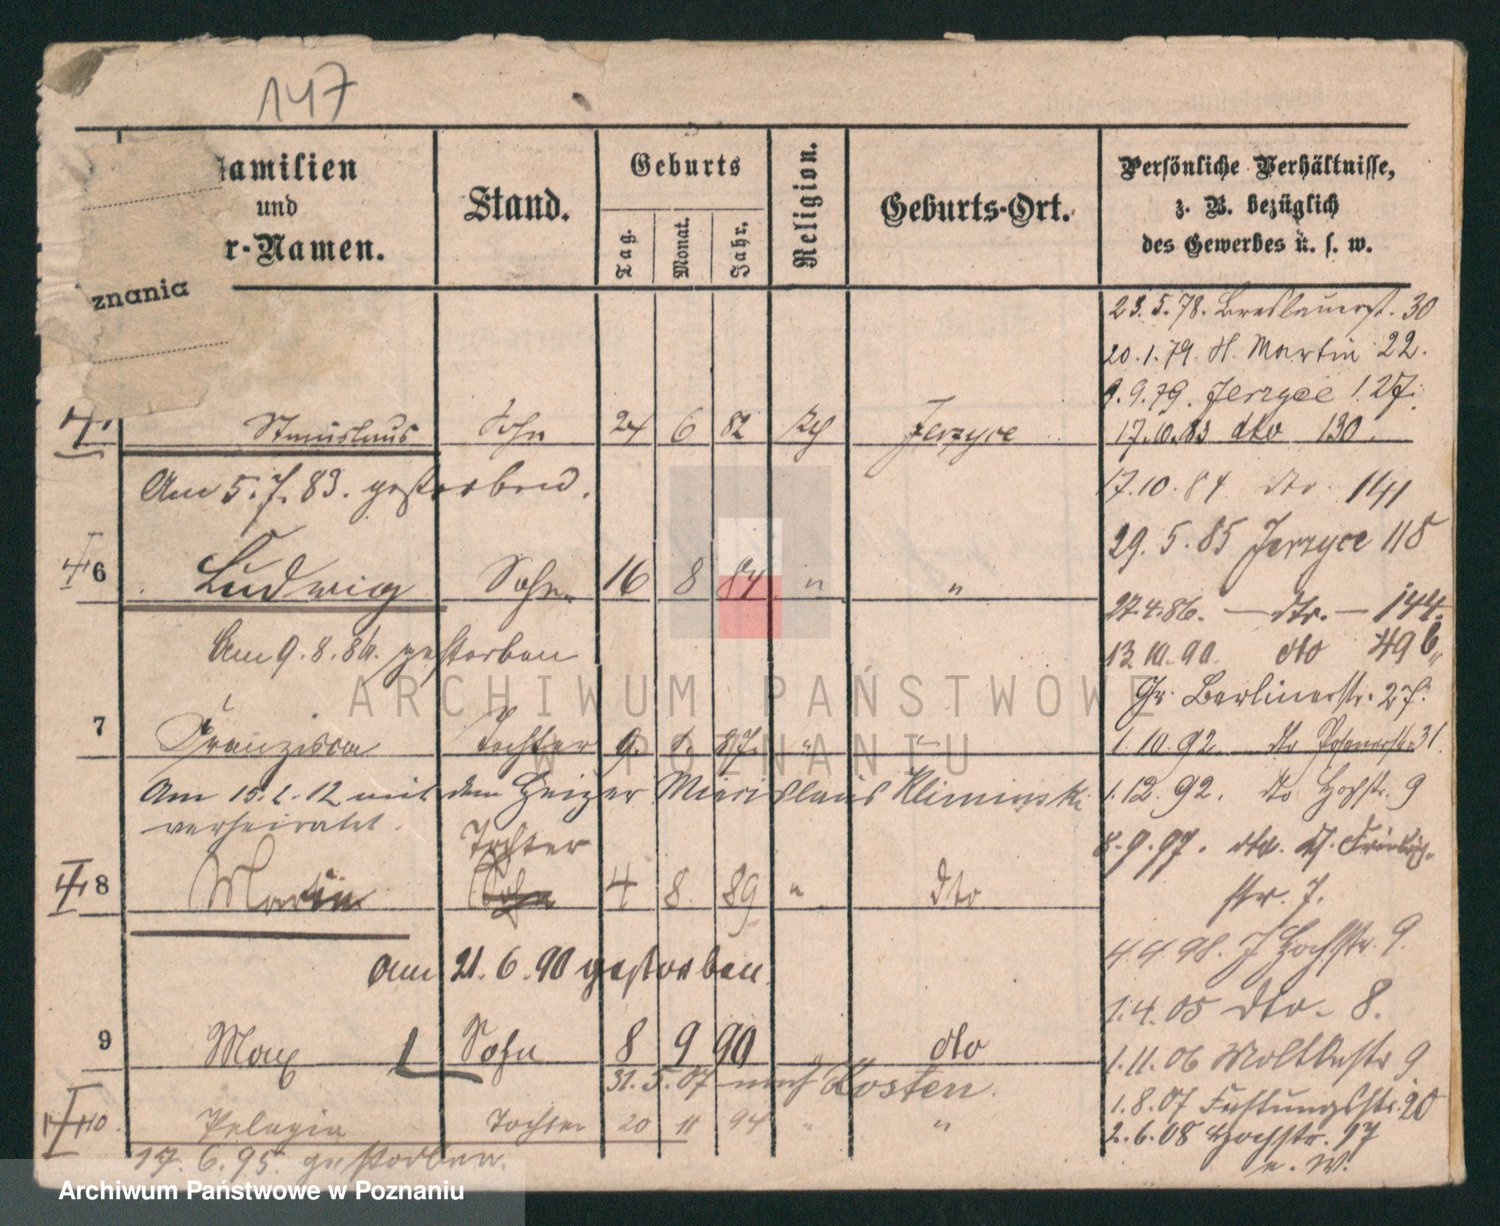 147
Familien
und
r-Namen.
Stand.
Geburts
Tag.
Monat.
Jahr.
Religion.
Geburts-Ort.
Persönliche Verhältnisse,
z. B. bezüglich
des Gewerbes u. s. w.
znania
23.5.78. Breslauerst. 30
20.1.79. St. Martin 22.
9.9.79. Jerzyce 127.
Stanislaus Sohn 24 6 82 Jerzyce 17.10.83 dto 130.
Am 5.7.83. gestorben.
17.10.84 dto. 141
29.5.85 Jerzyce 118
6 Ludwig Sohn 16 8 84 " "
27.4.86. — dto. — 144.
Am 9.8.86. gestorben
13.10.90. dto 496
Gr. Berlinerstr. 27.
7 Franziska Tochter 9. 87. " 1.10.92 dto Posenerstr. 31.
Am 12 mit dem Heizer Kliminski
verheiratet.
1.12.92. dto Hochstr. 9
Tochter
8.9.97. dto.
8 Sohn 4 8. 89 " dto
str. 7.
Am 21.6.90 gestorben.
4.4.98. J Hochstr. 9.
1.4.05 dto. 8.
9 Max Sohn 8 9 90 dto
31.5.07 nach Kosten.
1.11.06 Moltkestr 9
1.8.07 Festungsstr. 20
10. Pelagia Tochter 20 11 94 " "
2.6.08 Hochstr. 17
e. W.
17.6.95. gestorben.
ARCHIWUM PAŃSTWOWE
W POZNANIU
Archiwum Państwowe w Poznaniu